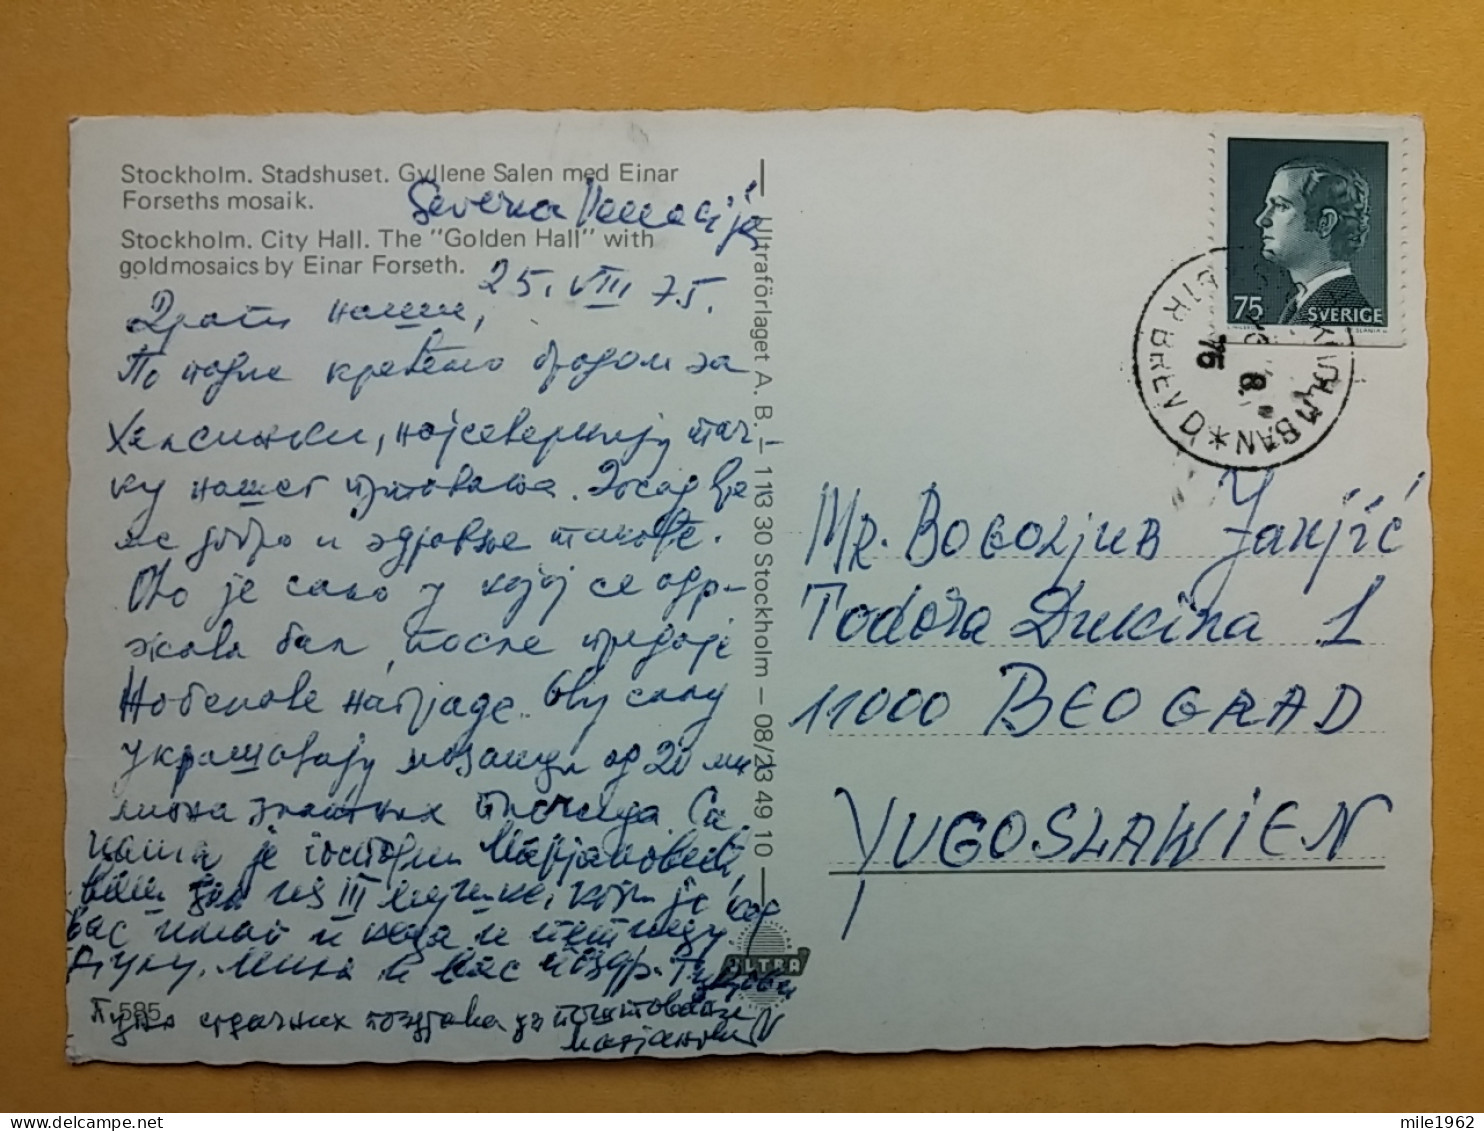 Stockholm. Stadshuset. Gyllene Salen med Einar
Forseths mosaik.
Stockholm. City Hall. The "Golden Hall" with
goldmosaics by Einar Forseth.
Severna
25. VIII 75.
Драги наши,
По подне крећемо бродом за
Хелсинки, најсевернију тач-
ку нашег путовања. Досад вре
ме добро и здравље такође.
Ово је сала у којој се одр-
жава бал, после предаје
Нобелове награде. Ову салу
украшавају мозаици од 20 ми
лиона златних плочица. Са
нама је господин Марјановић,
ваш ђак из III мушке, који је код
вас имао и
Мила и вас поздр.
Пуно срдачних поздрава уз поштовање
Марјановић
585
Ultraförlaget A. B. – 113 30 Stockholm – 08/23 49 10
ULTRA
75
SVERIGE
STOCKHOLM BAN
BREV
Mr. Bogoljub Janjić
Todora Dukina 1
11000 BEOGRAD
YUGOSLAWIEN
mile1962